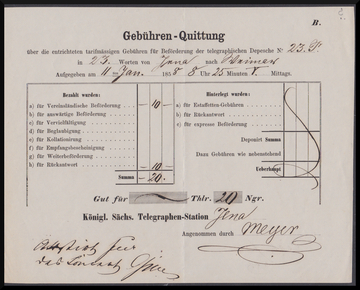 B.
Gebühren-Quittung
über die entrichteten tarifmässigen Gebühren für Beförderung der telegraphischen Depesche No 23.
in 23. Worten von Jena nach Weimar
Aufgegeben am 11 Jan. 1858 8 Uhr 25 Minuten V. Mittags.
Bezahlt wurden:
a) für Vereinsländische Beförderung — 10 —
b) für auswärtige Beförderung
c) für Vervielfältigung
d) für Beglaubigung
e) für Kollationirung
f) für Empfangsbescheinigung
g) für Weiterbeförderung
h) für Rückantwort — 10 —
Summa — 20. —
Hinterlegt wurden:
a) für Estaffetten-Gebühren
b) für Rückantwort
c) für expresse Beförderung
Deponirt Summa
Dazu Gebühren wie nebenstehend
Ueberhaupt
Gut für Thlr. 20 Ngr.
Königl. Sächs. Telegraphen-Station Jena
Angenommen durch Meyer